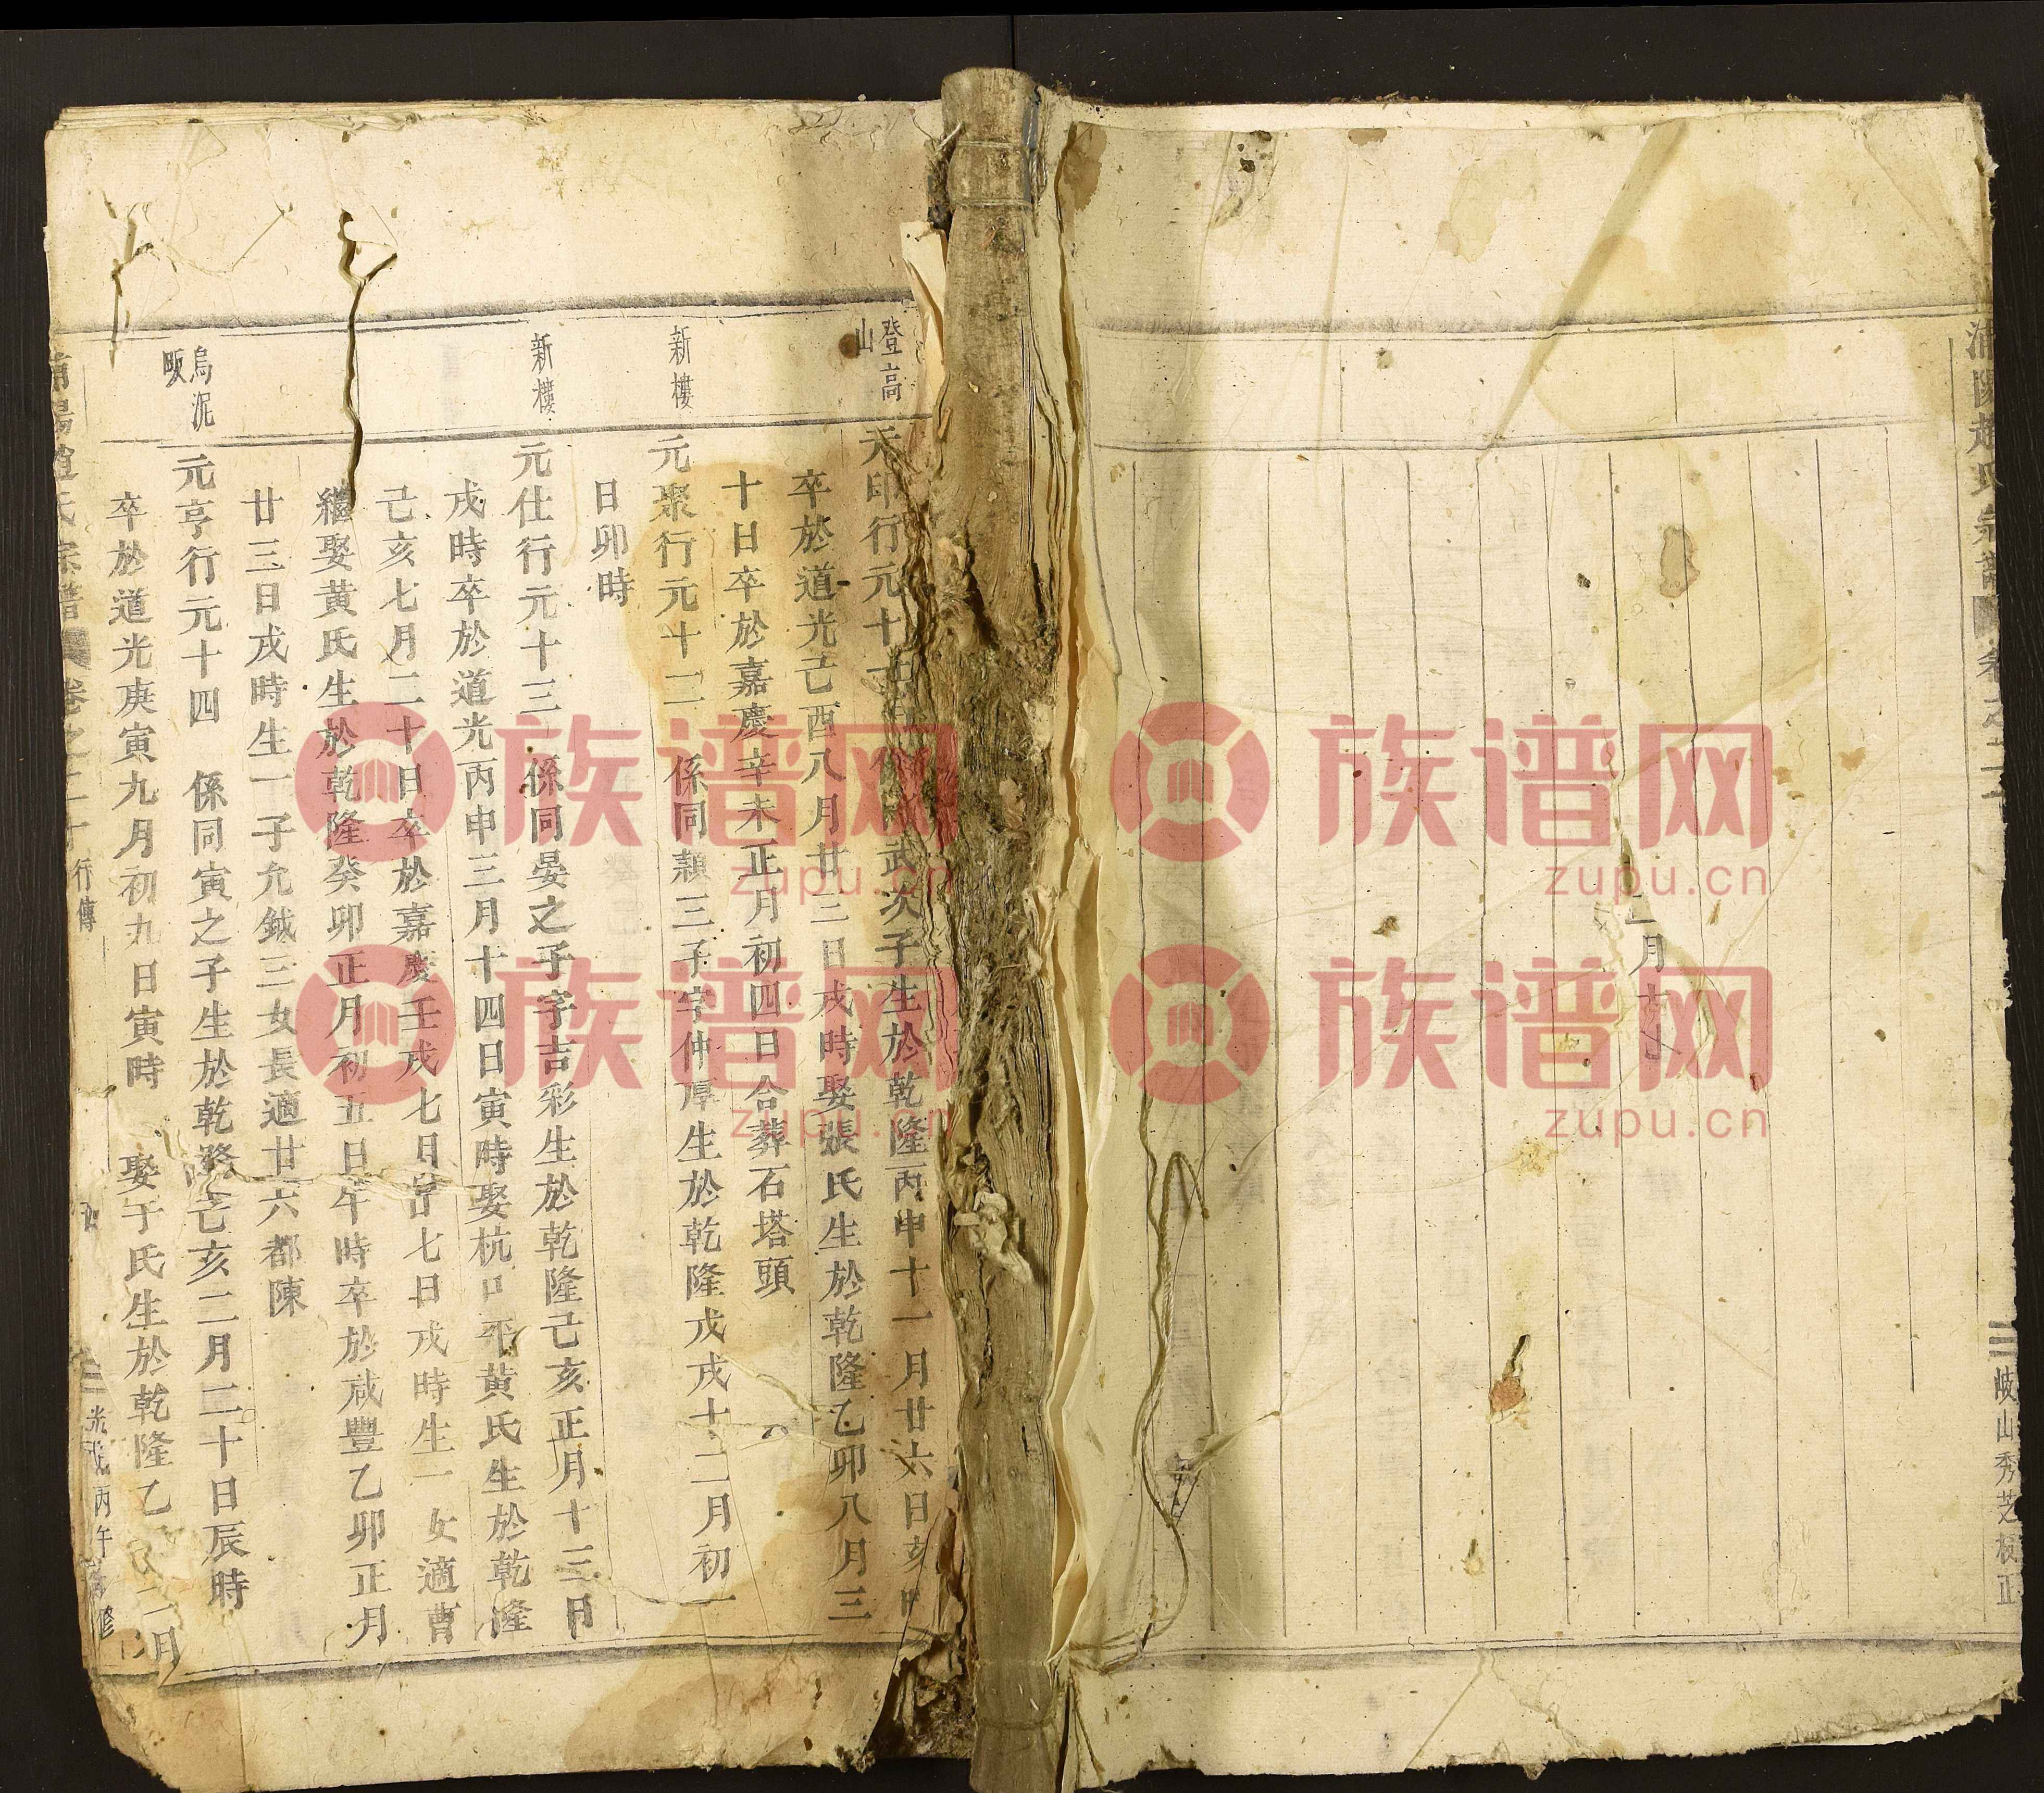 浦陽趙氏宗譜
卷之二十
岐山秀芝校正
月十
登高山
元印行元十
武次子生於乾隆丙申十一月廿六日亥時
卒於道光己酉八月廿三日戌時娶張氏生於乾隆乙卯八月三
十日卒於嘉慶辛未正月初四日合葬石塔頭
新樓
元聚行元十二 係同顯三子字仲厚生於乾隆戊戌十二月初一
日卯時
新樓
元仕行元十三 係同晏之子字吉彩生於乾隆己亥正月十三日
戌時卒於道光丙申三月十四日寅時娶杭口平黃氏生於乾隆
己亥七月二十日卒於嘉慶壬戌七月廿七日戌時生一女適曹
繼娶黃氏生於乾隆癸卯正月初五日午時卒於咸豐乙卯正月
廿三日戌時生一子允鉞三女長適廿六都陳
烏泥畈
元亨行元十四 係同寅之子生於乾隆己亥二月二十日辰時
卒於道光庚寅九月初九日寅時 娶于氏生於乾隆乙 二月
浦陽趙氏宗譜
卷之二十
行傳
光緒丙午 修
族谱网
zupu.cn
族谱网
zupu.cn
族谱网
zupu.cn
族谱网
zupu.cn